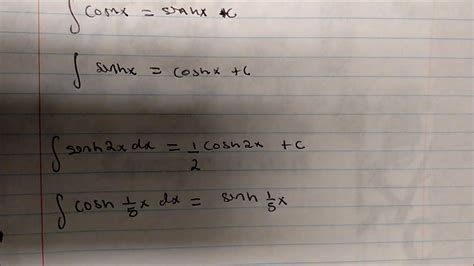 ∫ coshx = sinhx + C
∫ sinhx = coshx + C
∫ sinh2x dx = 1/2 cosh2x + C
∫ cosh 1/5 x dx = sinh 1/5 x